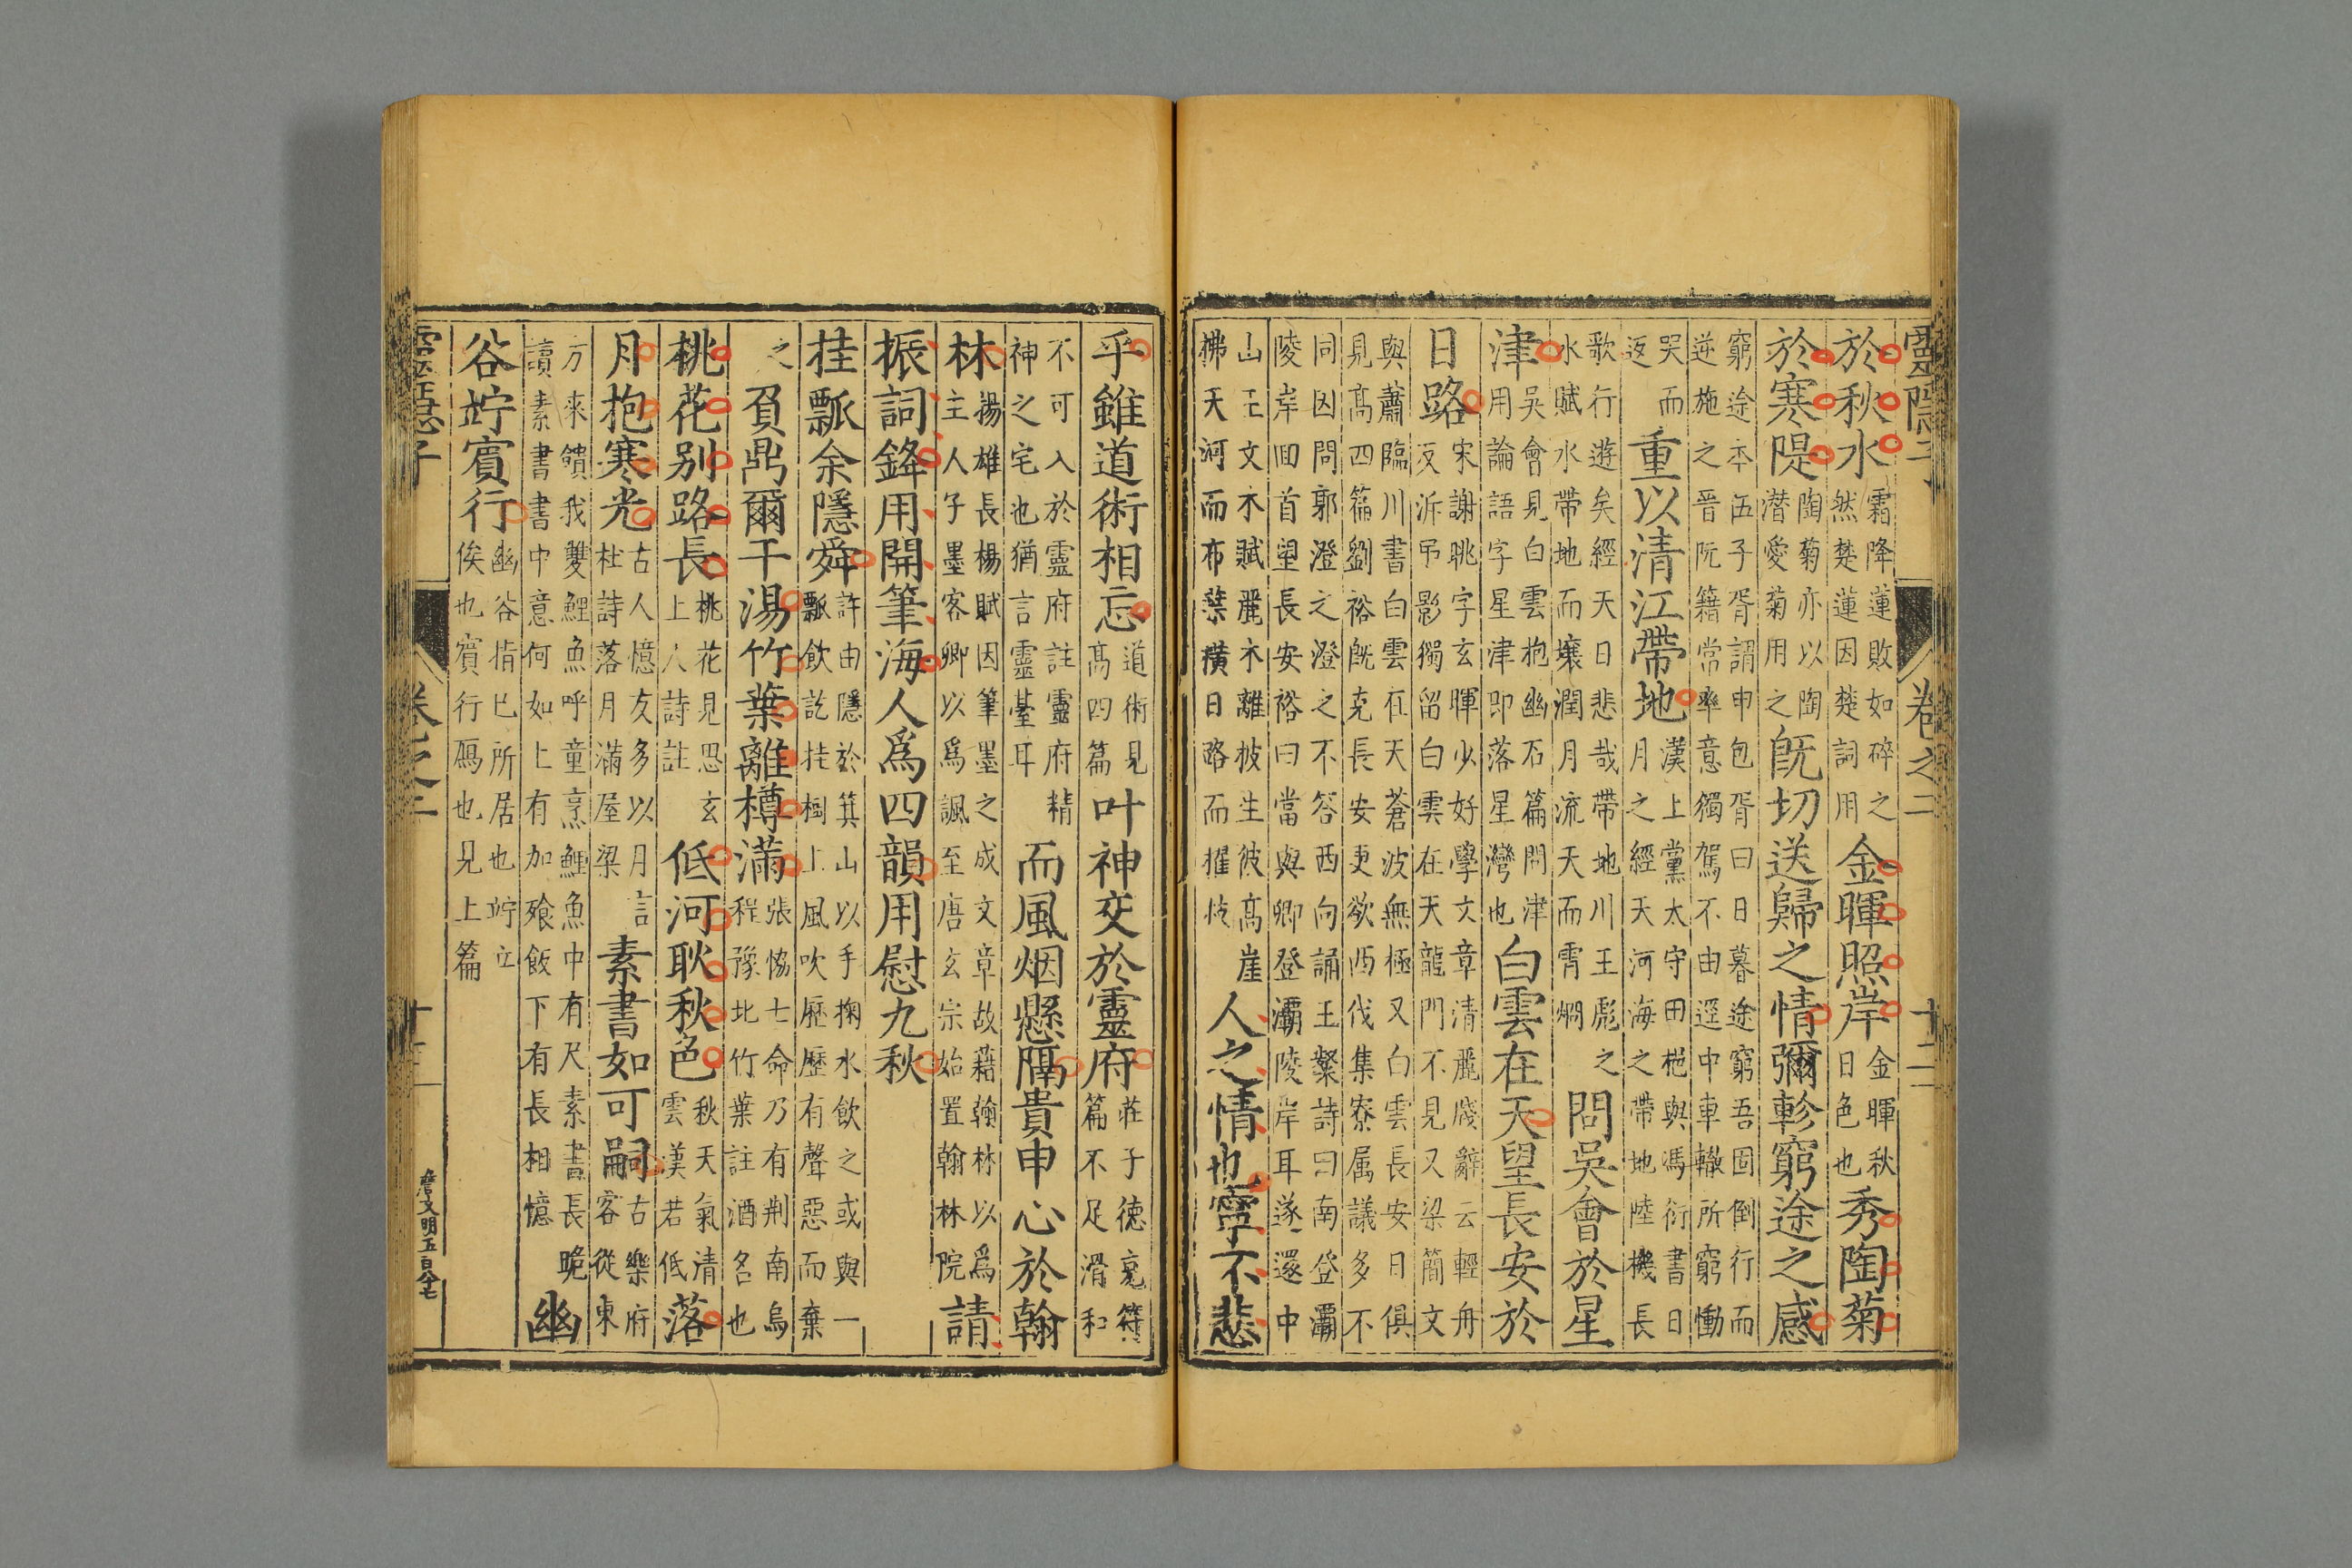 靈隱子
卷之二
十二
於秋水霜降蓮敗如碎之然楚蓮因楚詞用金暉照岸金暉秋日色也秀陶菊
於寒隄陶菊亦以陶潛愛菊用之旣切送歸之情彌軫窮途之感
窮途本伍子胥謂申包胥曰日暮途窮吾固倒行而逆施之晉阮籍常率意獨駕不由逕中車轍所窮慟
哭而返重以清江帶地漢上黨太守田邑與馮衍書日月之經天河海之帶地陸機長
歌行遊矣經天日悲哉帶地川王彪之水賦水帶地而壤潤月流天而霄爛問吳會於星
津吳會見白雲抱幽石篇問津用論語字星津即落星灣也白雲在天望長安於
日路宋謝眺字玄暉少好學文章清麗牋辭云輕舟反泝吊影獨留白雲在天龍門不見又梁簡文
與蕭臨川書白雲在天蒼波無極又白雲長安日俱見高四篇劉裕旣克長安更欲西伐集寮属議多不
同因問郭澄之澄之不答西向誦王粲詩曰南登灞陵岸囬首望長安裕曰當與卿登灞陵岸耳遂還中
山王文木賦麗木離披生彼高崖拂天河而布葉橫日路而擢枝人之情也寧不悲
乎雖道術相忘道術見高四篇叶神交於靈府莊子德充符篇不足滑和
不可入於靈府註靈府精神之宅也猶言靈臺耳而風烟懸隔貴申心於翰
林揚雄長楊賦因筆墨之成文章故藉翰林以爲主人子墨客卿以爲諷至唐玄宗始置翰林院請
振詞鋒用開筆海人爲四韻用慰九秋
挂瓢余隱舜許由隱於箕山以手掬水飲之或與一瓢飲訖挂樹上風吹歷歷有聲惡而棄
之負鼎爾干湯竹葉離樽滿張恊七命乃有荆南烏程豫北竹葉註酒名也
桃花别路長桃花見思玄上人詩註低河耿秋色秋天氣清雲漢若低落
月抱寒光古人憶友多以月言杜詩落月滿屋梁素書如可嗣古樂府客從東
方來饋我雙鯉魚呼童烹鯉魚中有尺素書長跪讀素書書中意何如上有加飱飯下有長相憶幽
谷竚賓行幽谷指已所居也竚立俟也賓行鴈也見上篇
靈隱子
卷之二
十二
詹文明五百八十七